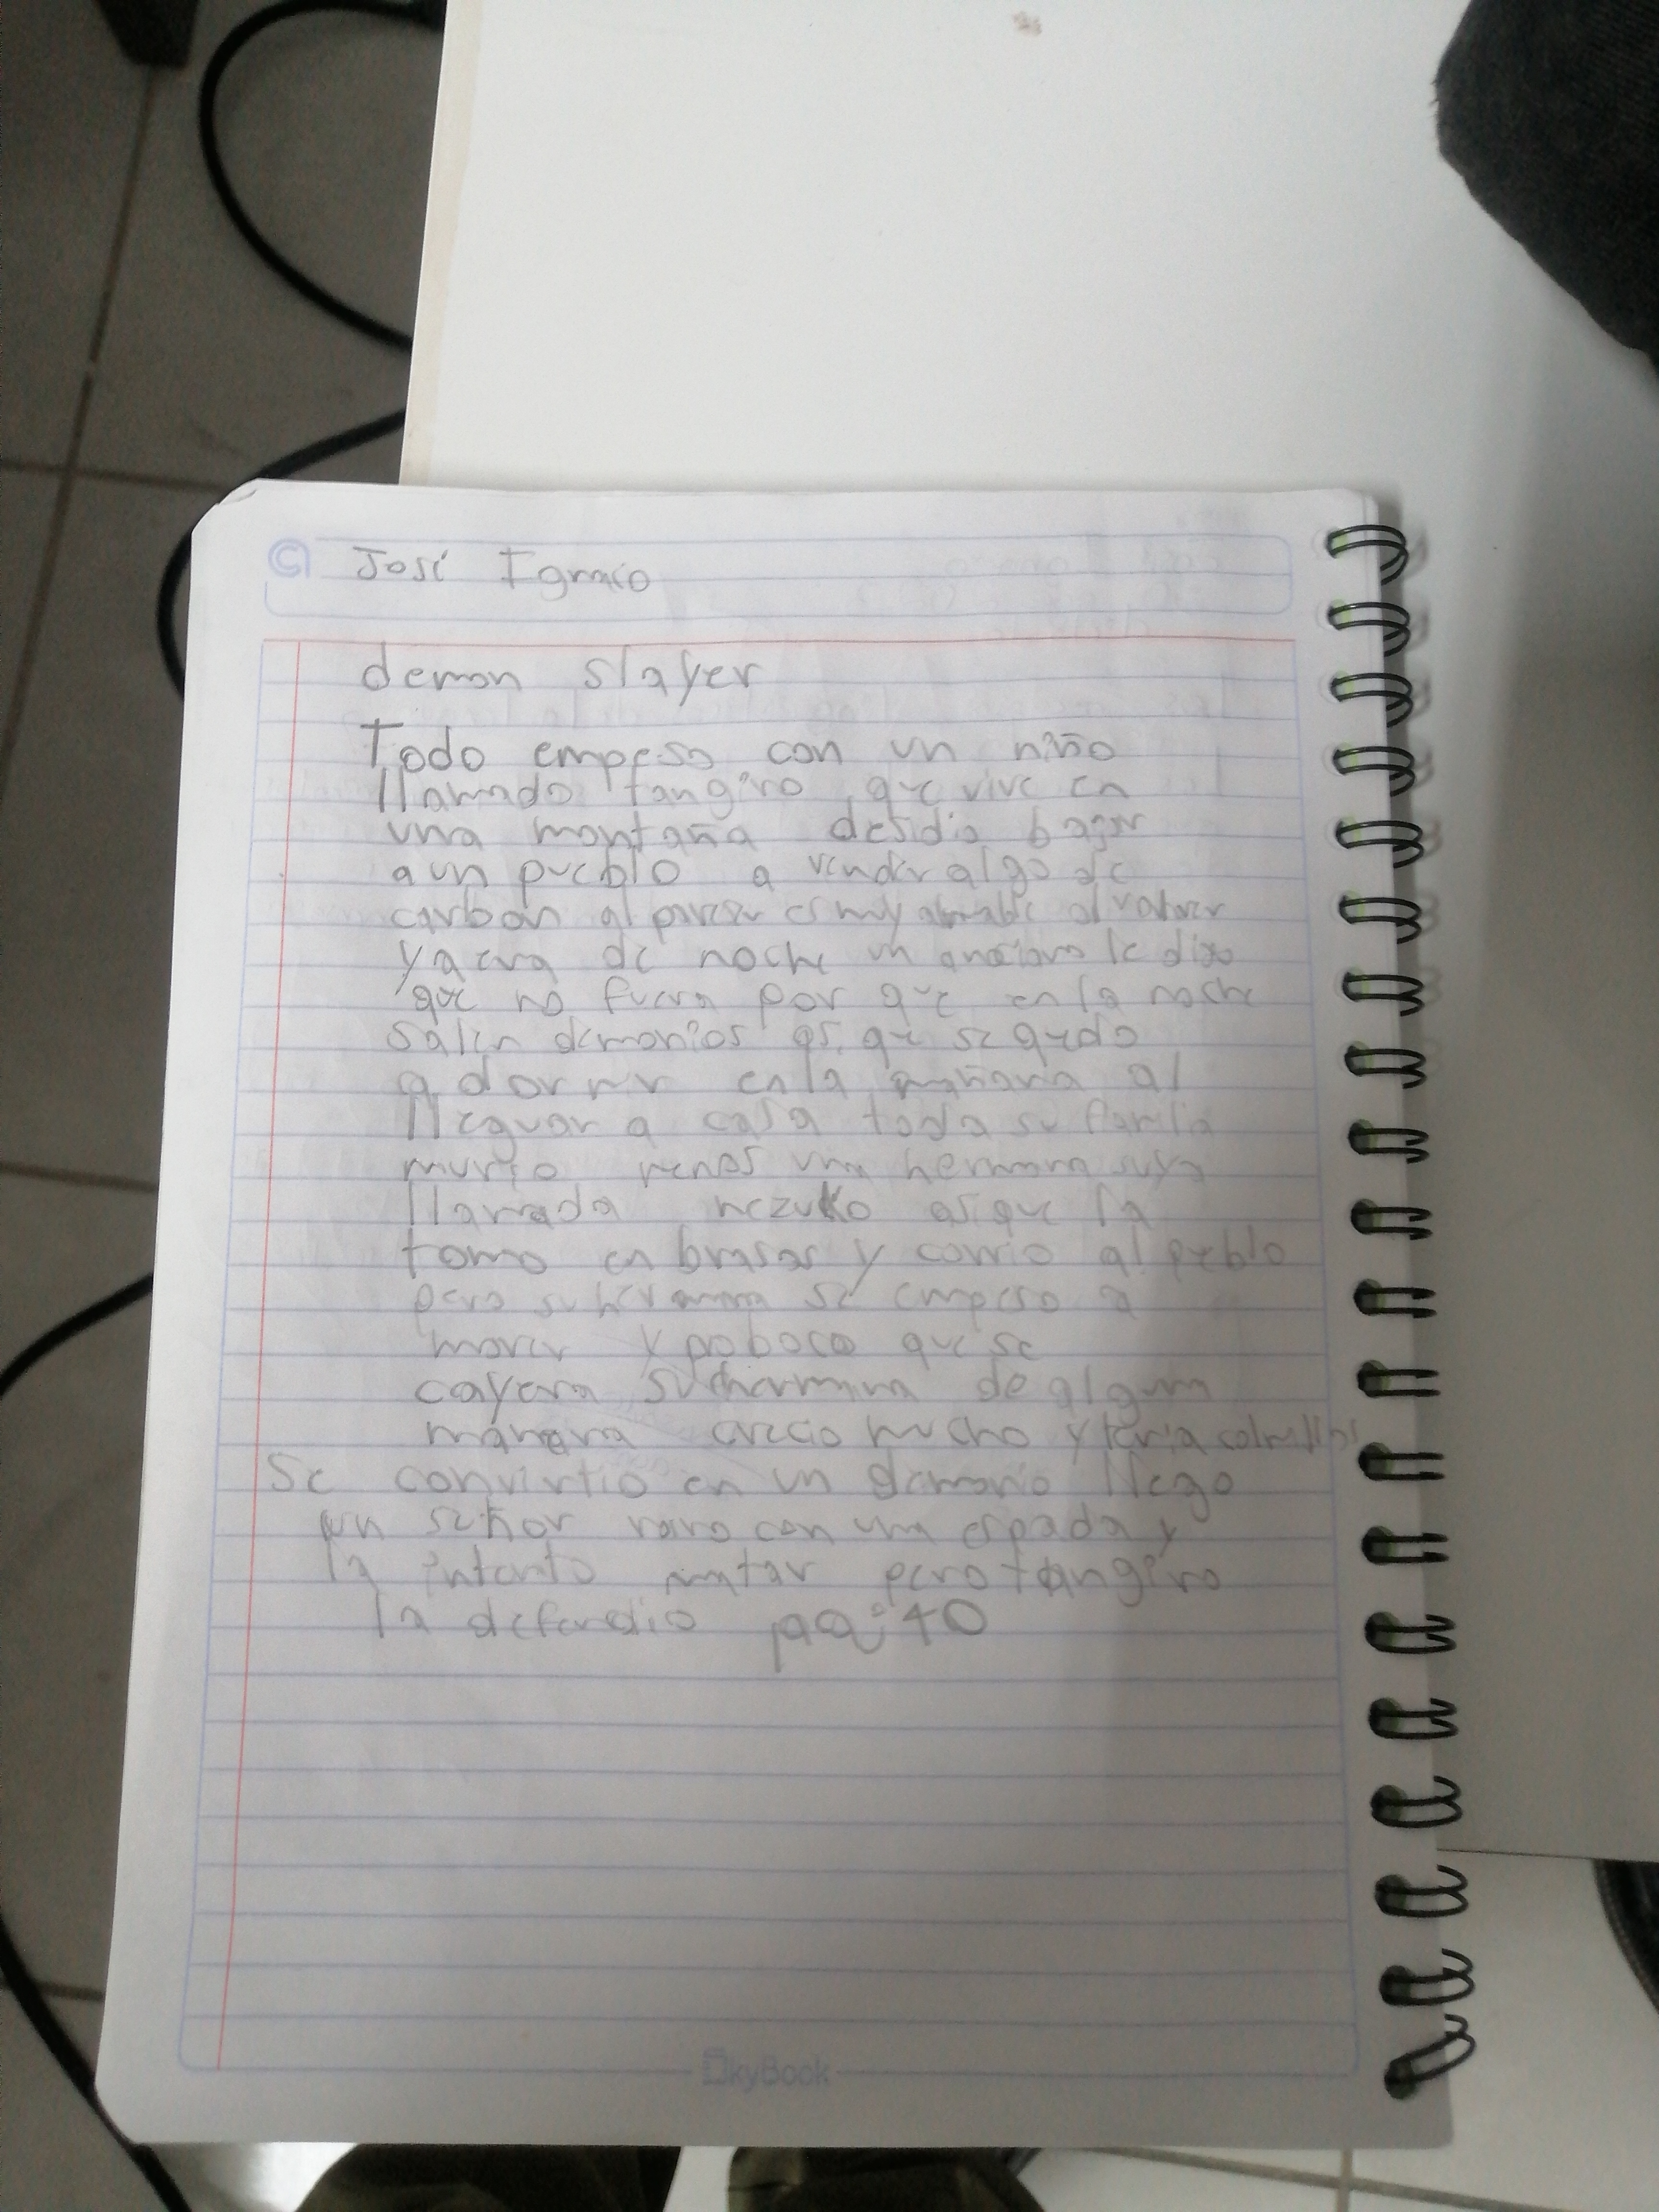 José Ignacio
demon slayer
Todo empeso con un niño
llamado tangiro que vive en
una montaña desidio bajar
a un pueblo a vender algo de
carbon al parecer es muy amable al volver
ya era de noche un anciano le dijo
que no fuera por que en la noche
salen demonios asi que se quedo
a dormir en la mañana al
lleguar a casa toda su familia
murio menos una hermana suya
llamada nezuko asi que la
tomo en brasos y corrio al pueblo
pero su hermana se empeso a
mover y poboco que se
cayera su hermana de alguna
manera crecio mucho y tenia colmillos
Se convirtio en un demonio llego
un señor raro con una espada y
la intento matar pero tangiro
la defendio pag:40
SkyBook